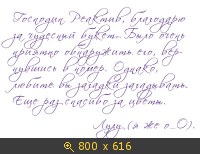 Господин Реактив, благодарю
за чудесный букет. Было очень
приятно обнаружить его, вер-
нувшись в номер. Однако,
любите вы загадки загадывать.
Еще раз спасибо за цветы.
Лулу (я же о_О).
800 x 616